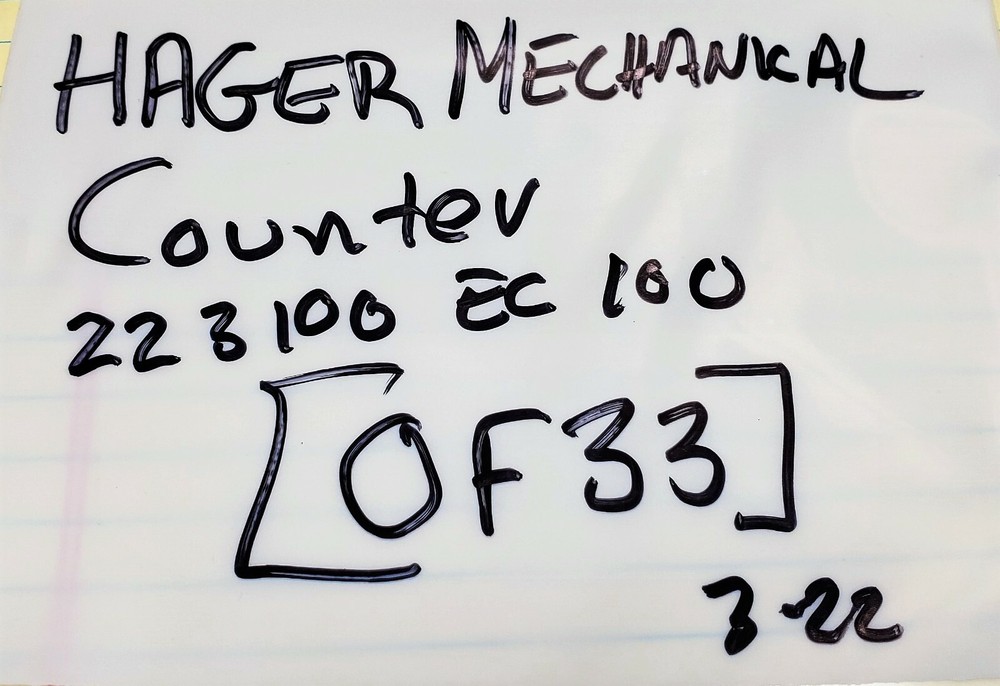 HAGER MECHANICAL
Counter
223100 EC 100
[OF33]
3-22